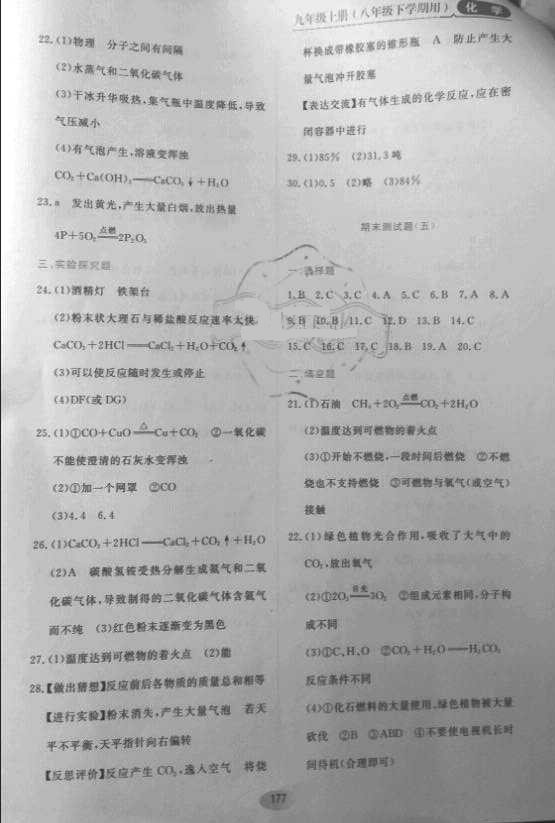 九年级上册(八年级下学期用) 化 学
22.(1)物理 分子之间有间隔
(2)水蒸气和二氧化碳气体
(3)干冰升华吸热,集气瓶中温度降低,导致
气压减小
(4)有气泡产生,溶液变浑浊
CO₂+Ca(OH)₂══CaCO₃↓+H₂O
23.a 发出黄光,产生大量白烟,放出热量
4P+5O₂ 点燃══ 2P₂O₅
三、实验探究题
24.(1)酒精灯 铁架台
(2)粉末状大理石与稀盐酸反应速率太快
CaCO₃+2HCl══CaCl₂+H₂O+CO₂↑
(3)可以使反应随时发生或停止
(4)DF(或 DG)
25.(1)①CO+CuO △══ Cu+CO₂ ②一氧化碳
不能使澄清的石灰水变浑浊
(2)①加一个网罩 ②CO
(3)4.4 6.4
26.(1)CaCO₃+2HCl══CaCl₂+CO₂↑+H₂O
(2)A 碳酸氢铵受热分解生成氨气和二氧
化碳气体,导致制得的二氧化碳气体含氨气
而不纯 (3)红色粉末逐渐变为黑色
27.(1)温度达到可燃物的着火点 (2)能
28.【做出猜想】反应前后各物质的质量总和相等
【进行实验】粉末消失,产生大量气泡 若天
平不平衡,天平指针向右偏转
【反思评价】反应产生 CO₂,逸入空气 将烧
杯换成带橡胶塞的锥形瓶 A 防止产生大
量气泡冲开胶塞
【表达交流】有气体生成的化学反应,应在密
闭容器中进行
29.(1)85% (2)31.3 吨
30.(1)0.5 (2)略 (3)84%
期末测试题(五)
一、选择题
1.B 2.C 3.C 4.A 5.C 6.B 7.A 8.A
9.B 10.B 11.C 12.D 13.B 14.C
15.C 16.C 17.C 18.B 19.A 20.C
二、填空题
21.(1)石油 CH₄+2O₂ 点燃══ CO₂+2H₂O
(2)温度达到可燃物的着火点
(3)①开始不燃烧,一段时间后燃烧 ②不燃
烧也不支持燃烧 ③可燃物与氧气(或空气)
接触
22.(1)绿色植物光合作用,吸收了大气中的
CO₂,放出氧气
(2)①2O₃══3O₂ ②组成元素相同,分子构
成不同
(3)①C、H、O ②CO₂+H₂O══H₂CO₃
反应条件不同
(4)①化石燃料的大量使用、绿色植物被大量
砍伐 ②B ③ABD ④不要使电视机长时
间待机(合理即可)
177